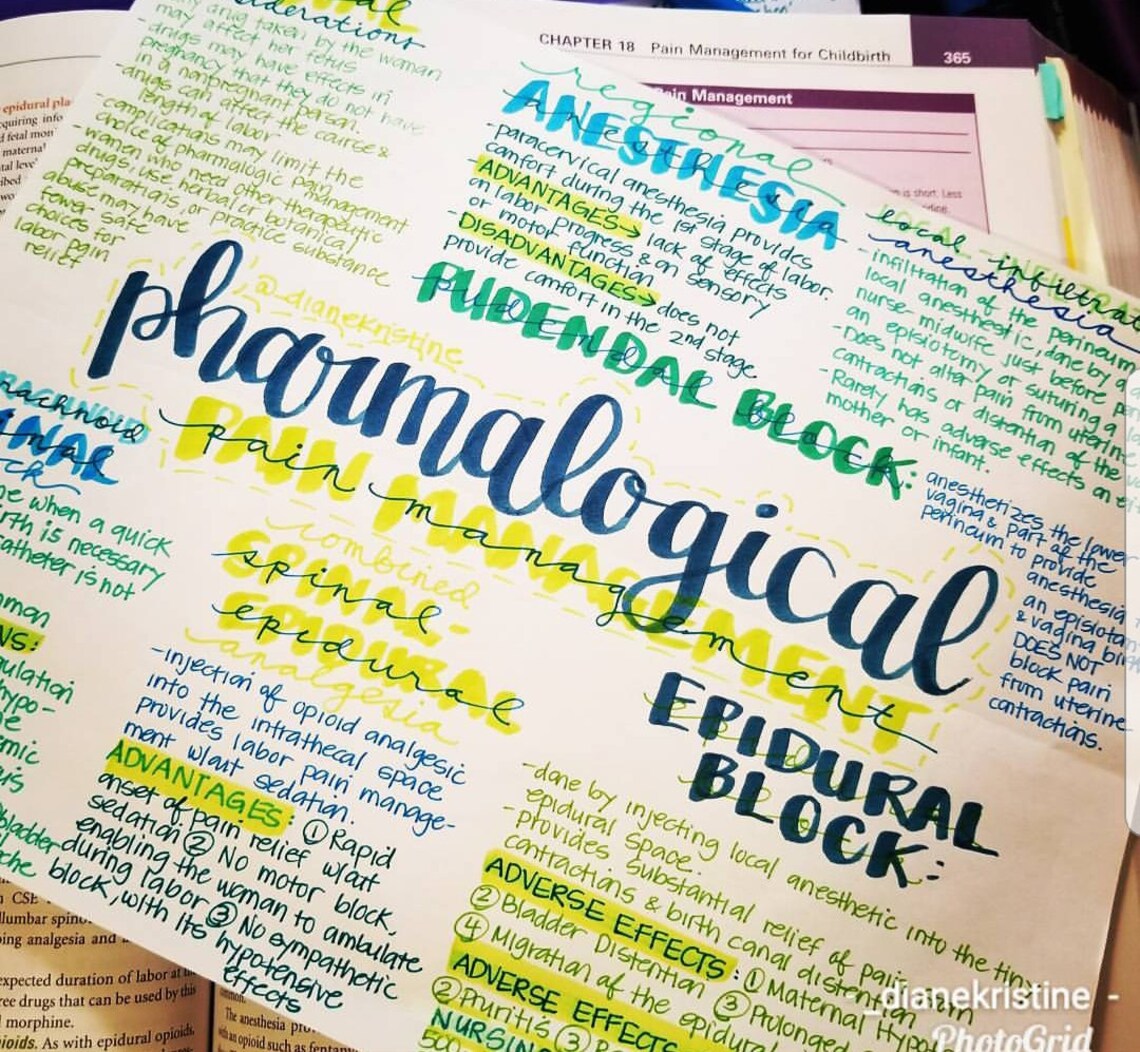 CHAPTER 18 Pain Management for Childbirth
365
Pain Management
is short. Less
epidural pla
quiring info
d fetal mon
maternal
considerations
any drug taken by the woman
may affect her fetus
drugs may have effects in
pregnancy that they do not have
in a nonpregnant person.
-drugs can affect the course &
length of labor
-complications may limit the
choice of pharmalogic pain management
-women who need other therapeutic
drugs, use herbal or botanical
preparations, or practice substance
abuse may have
fewer safe
choices for
labor pain
relief
regional
ANESTHESIA
anesthesia
-paracervical anesthesia provides
comfort during the 1st stage of labor.
-ADVANTAGES→ lack of effects
on labor progress & on sensory
or motor function
-DISADVANTAGES→ does not
provide comfort in the 2nd stage
local infiltrat
anesthesia
-infiltration of the perineum
local anesthestic, done by a
nurse-midwife just before
an episiotomy or suturing a
-Does not alter pain from uterine
contractions or distention of the
-Rarely has adverse effects on
mother or infant.
PUDENDAL BLOCK:
pudendal block
anesthetizes the lower
vagina & part of the
perineum to provide
anesthesia
an episiotom
& vaginal birth
DOES NOT
block pain
from uterine
contractions.
@_dianekristine
pharmalogical
PAIN MANAGEMENT
pain management
rachnoid
ck
me when a quick
birth is necessary
catheter is not
oman
NS:
hypo-
bladder
combined
SPINAL-
spinal-
EPIDURAL
epidural
analgesia
-injection of opioid analgesic
into the intrathecal space
provides labor pain manage-
ment w/out sedation.
ADVANTAGES: ① Rapid
onset of pain relief w/out
sedation ② No motor block,
enabling the woman to ambulate
during labor ③ No sympathetic
block, with its hypotensive
effects
EPIDURAL
BLOCK:
-done by injecting local anesthetic into the tiny
epidural space.
-provides substantial relief of pain from
contractions & birth canal distention
ADVERSE EFFECTS: ① Maternal Hypo
② Bladder Distention ③ Prolonged
④ Migration of the epidural
ADVERSE EFFECTS
② Pruritis ③
NURSING
500
CSE
lumbar spin
ing analgesia and
expected duration of labor at
ree drugs that can be used by this
morphine.
ioids. As with epidural opioids,
common.
The anesthesia pro
with an opioid such as fentan
_dianekristine -
PhotoGrid